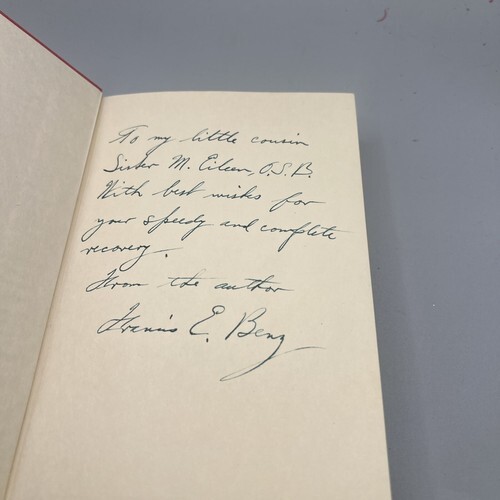 To my little cousin
Sister M. Eileen, O.S.B.
With best wishes for
your speedy and complete
recovery.
From the author
Francis E. Benz